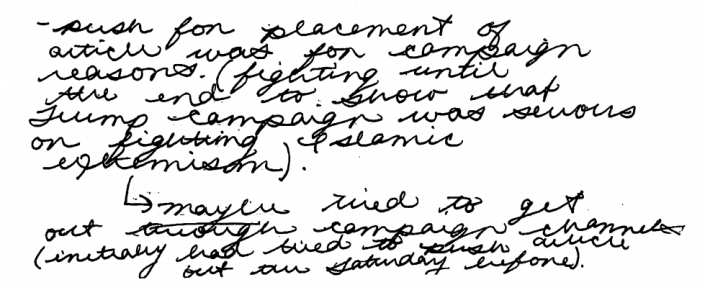 - push for placement of
article was for campaign
reasons. (fighting until
the end to show that
Trump campaign was serious
on fighting Islamic
extremism).
↳ maybe tried to get
out through campaign channels
(initially had tried to push article
out the Saturday before).